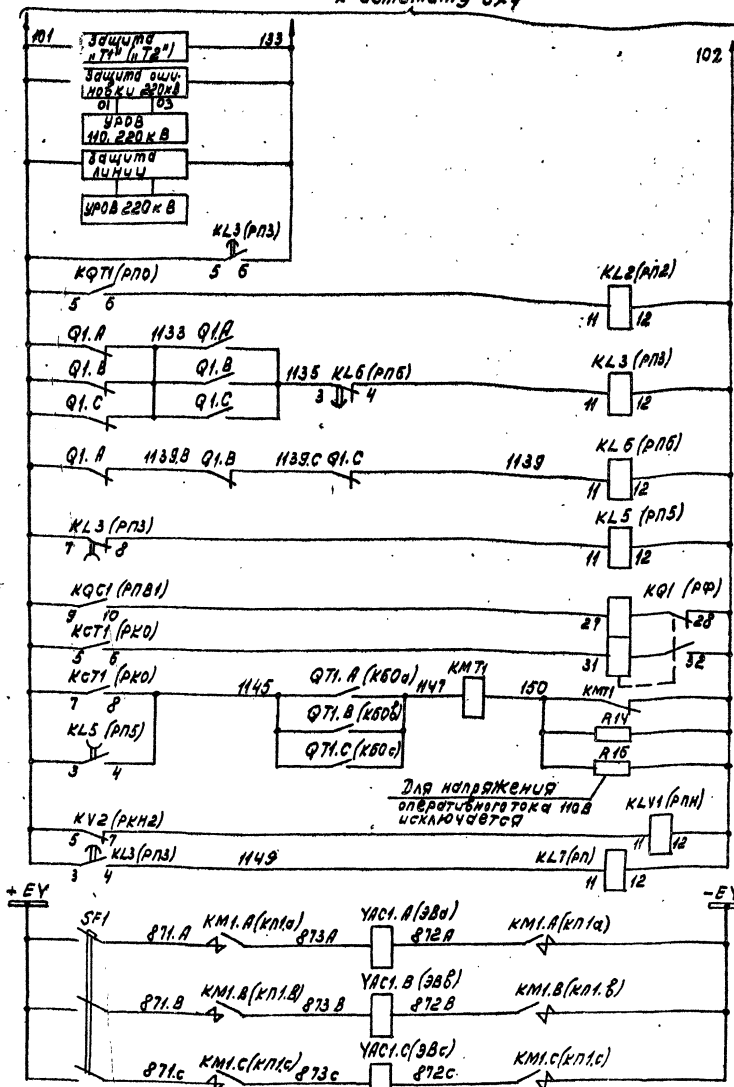 к автомату ОХУ
101
Защита
„Т1" („Т2")
133
102
Защита оши-
новки 220кВ
01 03
УРОВ
110, 220 кВ
Защита
линии
УРОВ 220 кВ
KL3 (РП3)
5 6
KQT1 (РПО)
5 6
KL2 (РП2)
11 12
Q1.A 1133 Q1.A
Q1.B Q1.B 1135 KL6 (РП6)
3 4
KL3 (РП3)
11 12
Q1.C Q1.C
Q1.A 1139.B Q1.B 1139.C Q1.C 1139
KL6 (РП6)
11 12
KL3 (РП3)
7 8
KL5 (РП5)
11 12
KQC1 (РПВ1)
9 10
KQ1 (РФ)
27 28
KCT1 (РКО)
5 6
31 32
KCT1 (РКО)
7 8
1145
QT1.A (КБОа)
1147
KMT1
150
KMT1
QT1.B (КБОв)
R14
KL5 (РП5)
3 4
QT1.C (КБОс)
R16
Для напряжения
оперативного тока 110В
исключается
KV2 (РКН2)
5 7
KLV1 (РПН)
11 12
KL3 (РП3)
3 4
1149
KL7 (РП)
11 12
+ EY
- EY
SF1
871.A KM1.A (КП1а) 873A YAC1.A (ЭВа) 872A KM1.A (КП1а)
871.B KM1.B (КП1.В) 873B YAC1.B (ЭВв) 872B KM1.B (КП1.в)
871.C KM1.C (КП1.с) 873C YAC1.C (ЭВс) 872C KM1.C (КП1.с)